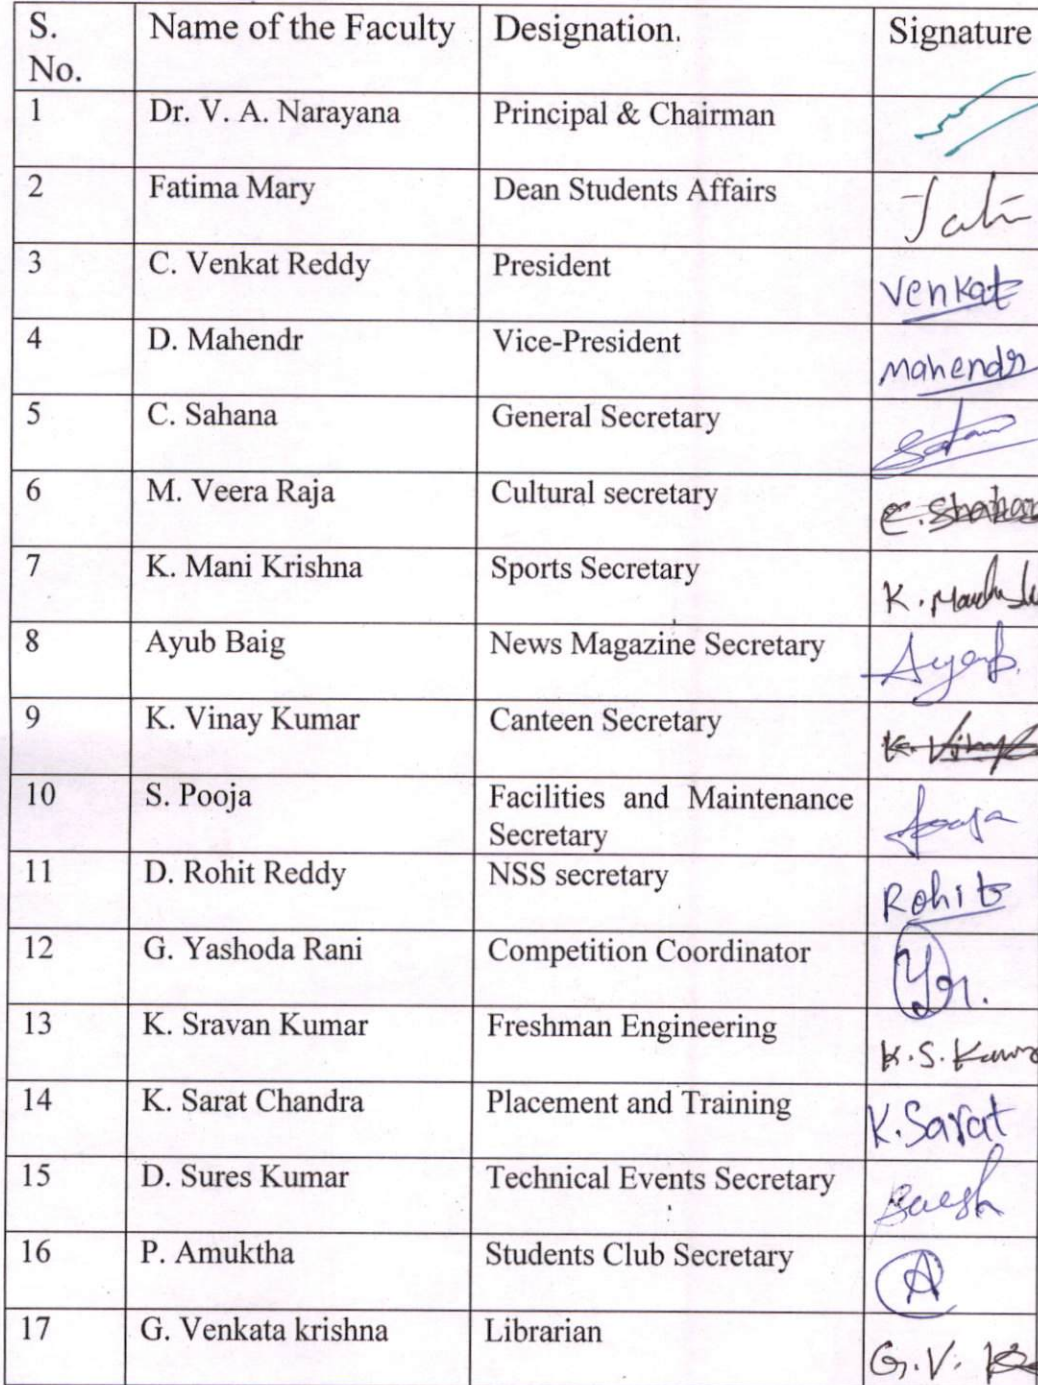 S. No. Name of the Faculty Designation. Signature
1 Dr. V. A. Narayana Principal & Chairman
2 Fatima Mary Dean Students Affairs
3 C. Venkat Reddy President Venkat
4 D. Mahendr Vice-President Mahendr
5 C. Sahana General Secretary
6 M. Veera Raja Cultural secretary
7 K. Mani Krishna Sports Secretary K.
8 Ayub Baig News Magazine Secretary Ayub.
9 K. Vinay Kumar Canteen Secretary
10 S. Pooja Facilities and Maintenance
Secretary Pooja
11 D. Rohit Reddy NSS secretary Rohit
12 G. Yashoda Rani Competition Coordinator
13 K. Sravan Kumar Freshman Engineering K.S.
14 K. Sarat Chandra Placement and Training K.Sarat
15 D. Sures Kumar Technical Events Secretary
16 P. Amuktha Students Club Secretary A
17 G. Venkata krishna Librarian G.V.